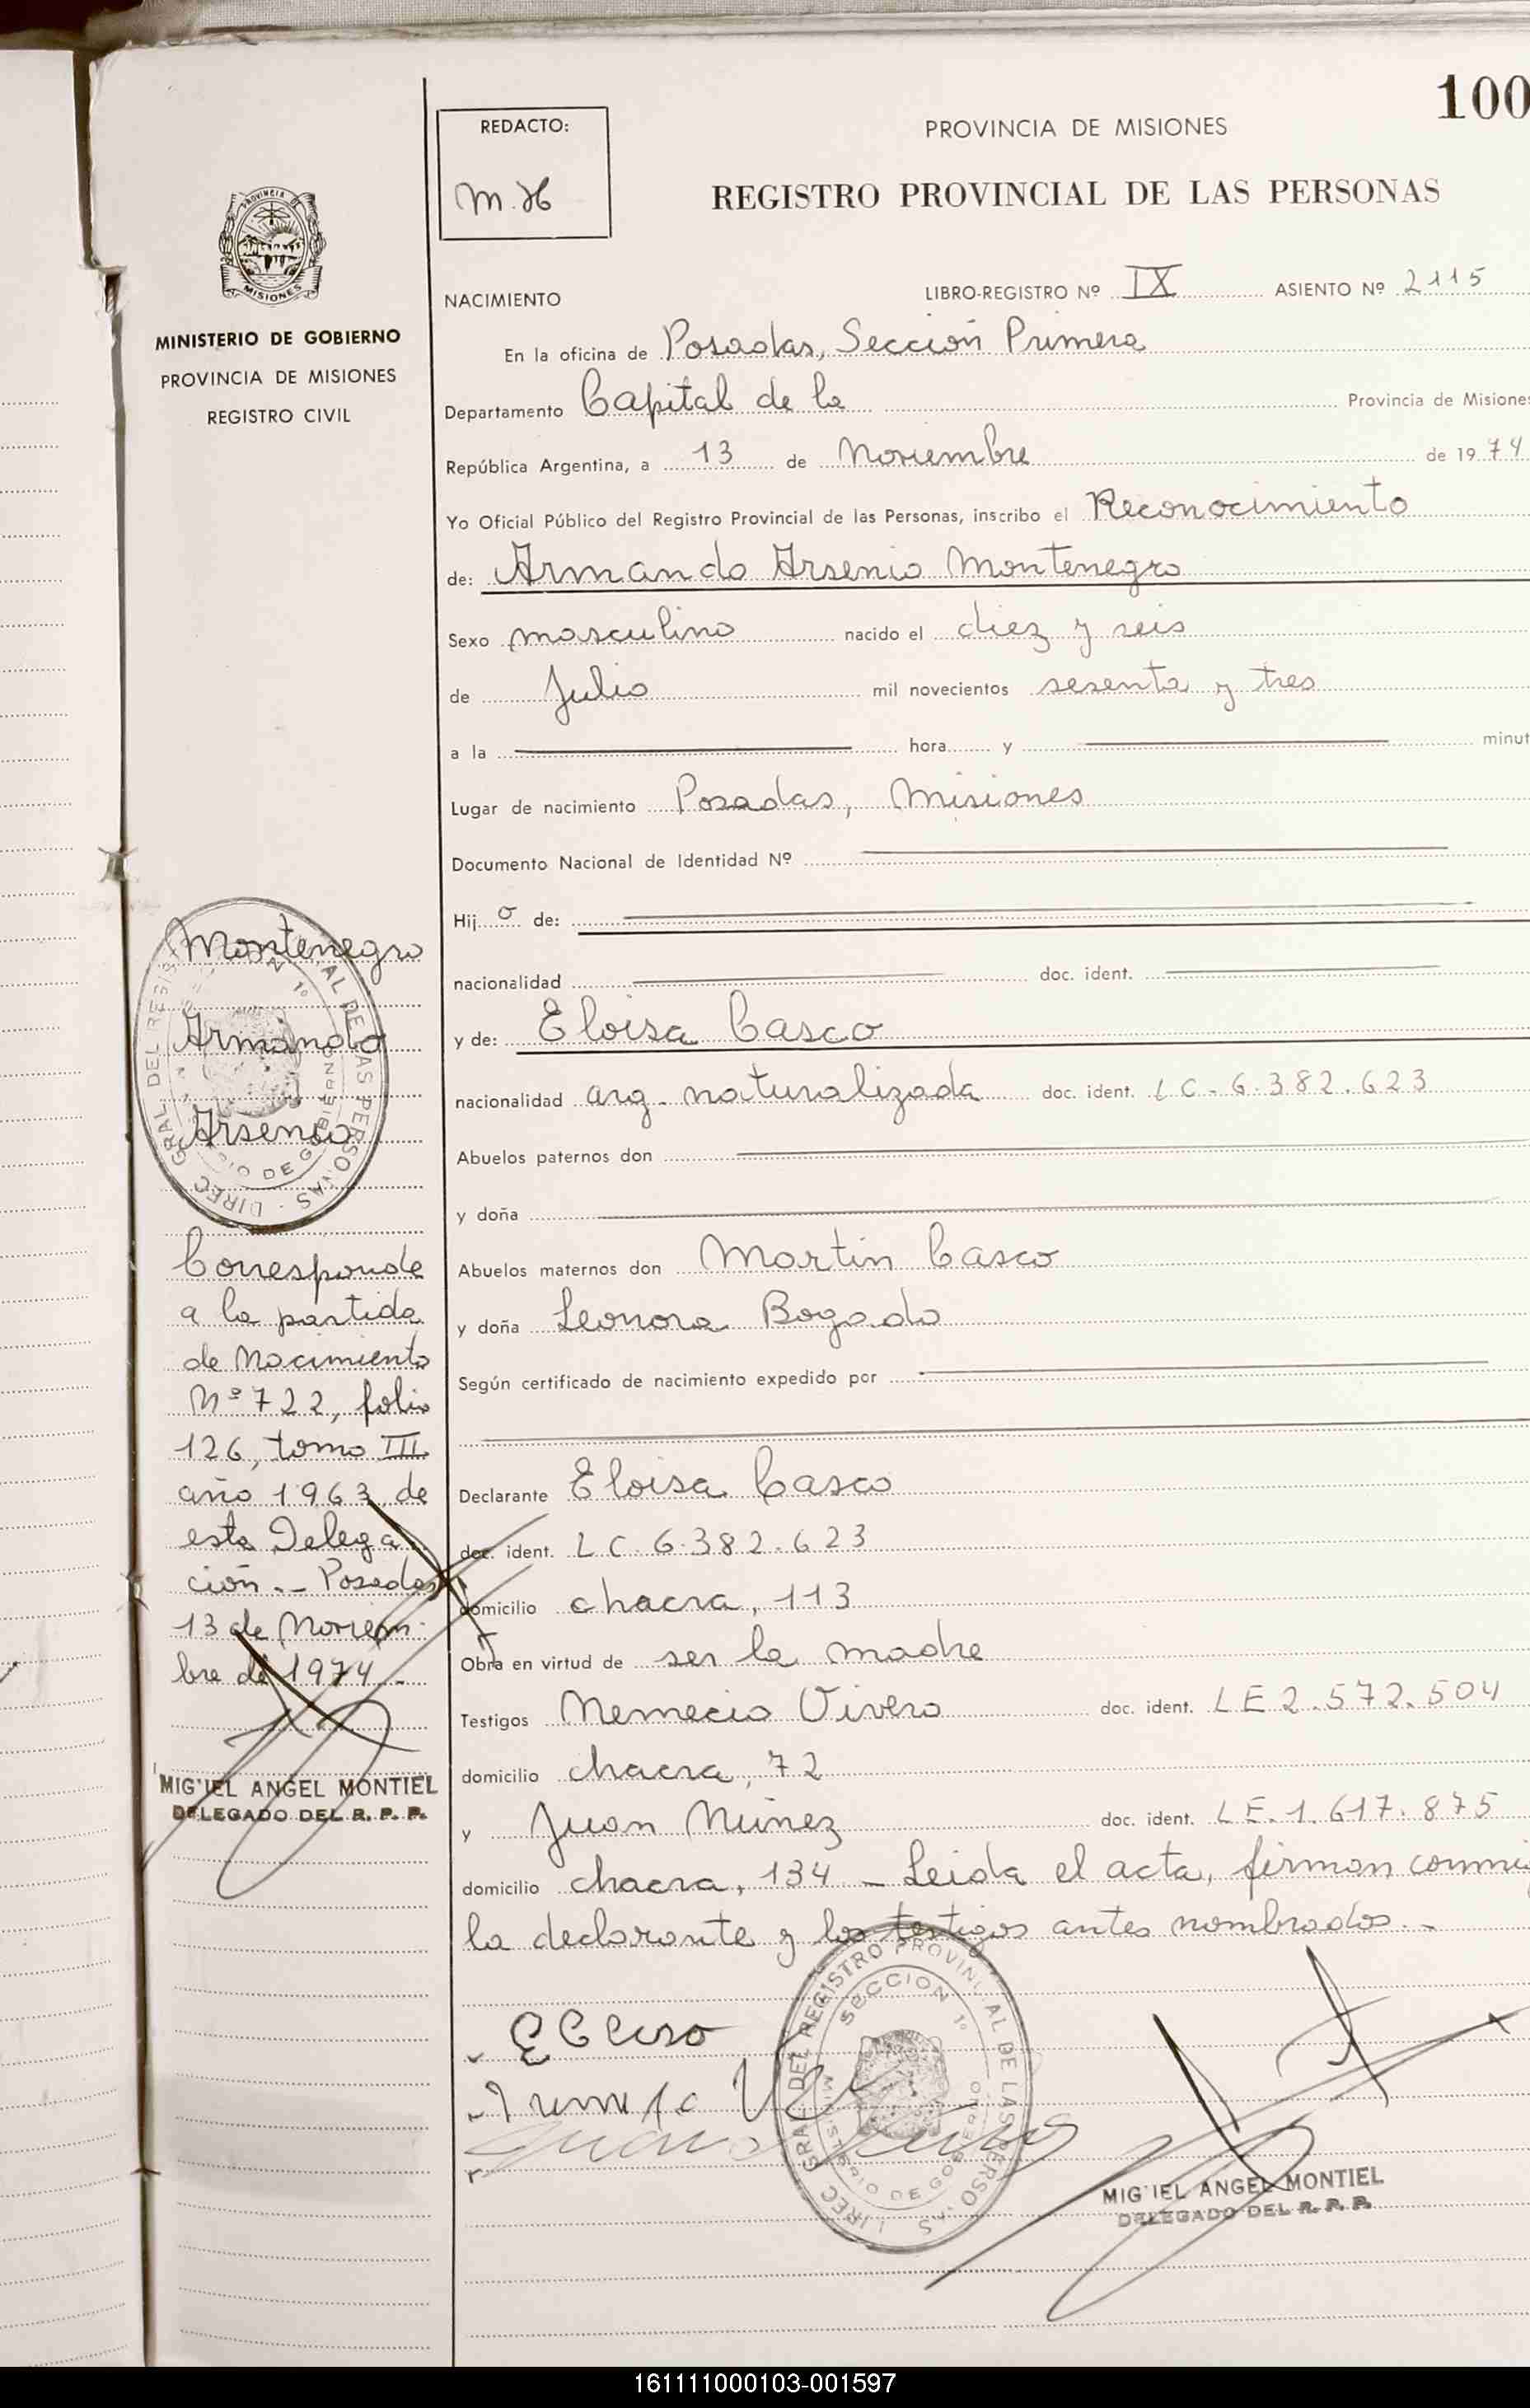 100
REDACTO:
M.H
PROVINCIA DE MISIONES
REGISTRO PROVINCIAL DE LAS PERSONAS
PROVINCIA DE
MISIONES
MINISTERIO DE GOBIERNO
PROVINCIA DE MISIONES
REGISTRO CIVIL
NACIMIENTO
LIBRO-REGISTRO Nº IX ASIENTO Nº 2115
En la oficina de Posadas, Sección Primera
Departamento Capital de la Provincia de Misiones
República Argentina, a 13 de Noviembre de 1974
Yo Oficial Público del Registro Provincial de las Personas, inscribo el Reconocimiento
de: Armando Arsenio Montenegro
Sexo masculino nacido el diez y seis
de Julio mil novecientos sesenta y tres
a la hora y minut
Lugar de nacimiento Posadas, Misiones
Documento Nacional de Identidad Nº
Hij o de:
nacionalidad doc. ident.
y de: Eloisa Casco
nacionalidad arg. naturalizada doc. ident. LC-6.382.623
Abuelos paternos don
y doña
Abuelos maternos don Martin Casco
y doña Leonora Bogado
Según certificado de nacimiento expedido por
Declarante Eloisa Casco
doc. ident. LC.6.382.623
domicilio chacra, 113
Obra en virtud de ser la madre
Testigos Nemecio Vivero doc. ident. LE 2.572.504
domicilio chacra, 72
y Juan Núnez doc. ident. LE.1.617.875
domicilio chacra, 134 - Leida el acta, firman conmi
la declarante y los testigos antes nombrados.-
Montenegro
Armando
Arsenio
Corresponde
a la partida
de Nacimiento
Nº 722, folio
126, tomo III
año 1963, de
esta Delega
ción.- Posadas
13 de Noviem-
bre de 1974-
MIGUEL ANGEL MONTIEL
DELEGADO DEL R. P. P.
DIREC GRAL DEL REGISTRO PROVINCIAL DE LAS PERSONAS
SECCION 1º
MINISTERIO DE GOBIERNO
MIGUEL ANGEL MONTIEL
DELEGADO DEL R. P. P.
161111000103-001597